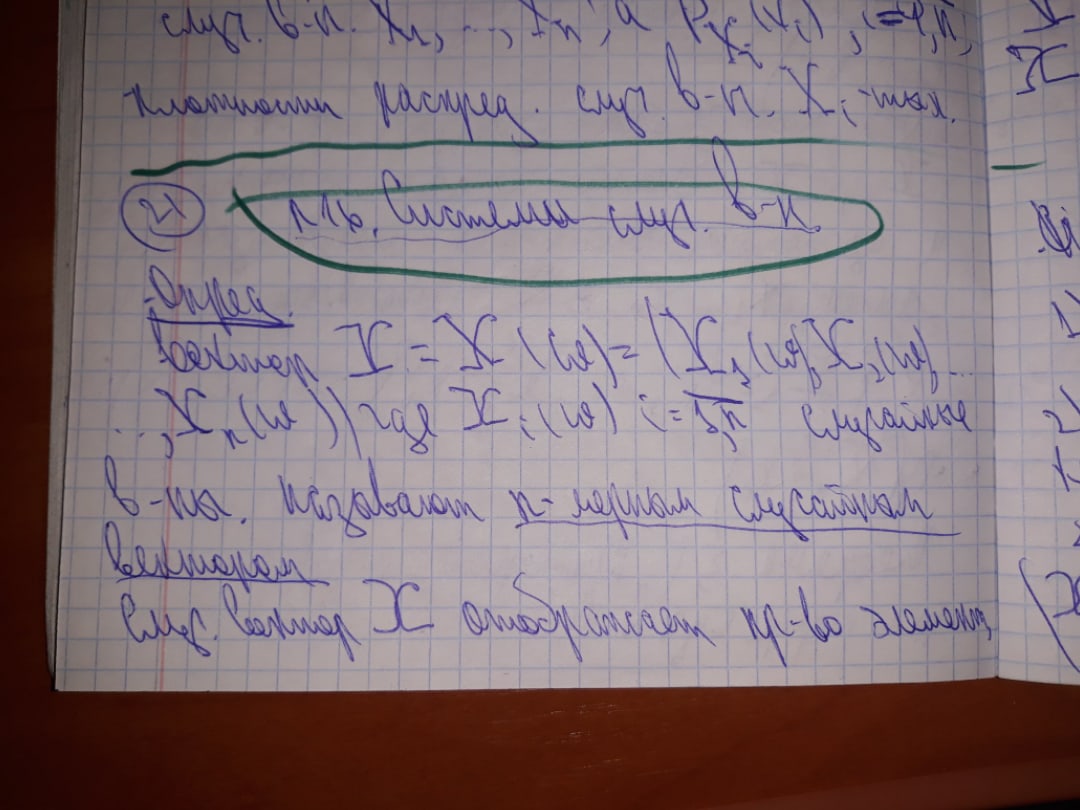 случ. в-н. X₁, ..., Xₙ, а P_Xᵢ(xᵢ), i=1,n̅,
плотности распред. случ. в-н. Xᵢ-тых.
21
п16. Системы случ. в-н.
Опред.
Вектор X = X(ω) = (X₁(ω), X₂(ω), ...
..., Xₙ(ω)) где Xᵢ(ω) i=1,n̅ случайные
в-ны. называют n-мерным случайным
вектором
Случ. вектор X отображает пр-во элемент.